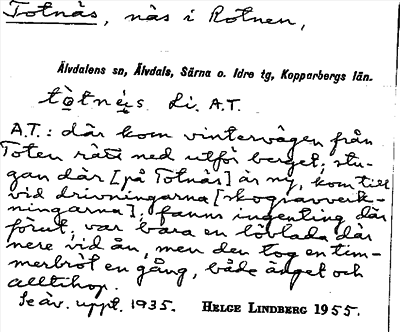 Totnäs, näs i Rotnen,
Älvdalens sn, Älvdals, Särna o. Idre tg, Kopparbergs län.
Li. A.T.
A.T.: där kom vintervägen från
Toten rätt ned utför berget; stu-
gan där [på Totnäs] är ny, kom till
vid drivningarna [skogsavverk-
ningarna]; fanns ingenting där
förut, var bara en lövlada där
nere vid ån, men den tog en tim-
merbröt en gång, både änget och
alltihop.
Se äv. uppt. 1935. HELGE LINDBERG 1955.